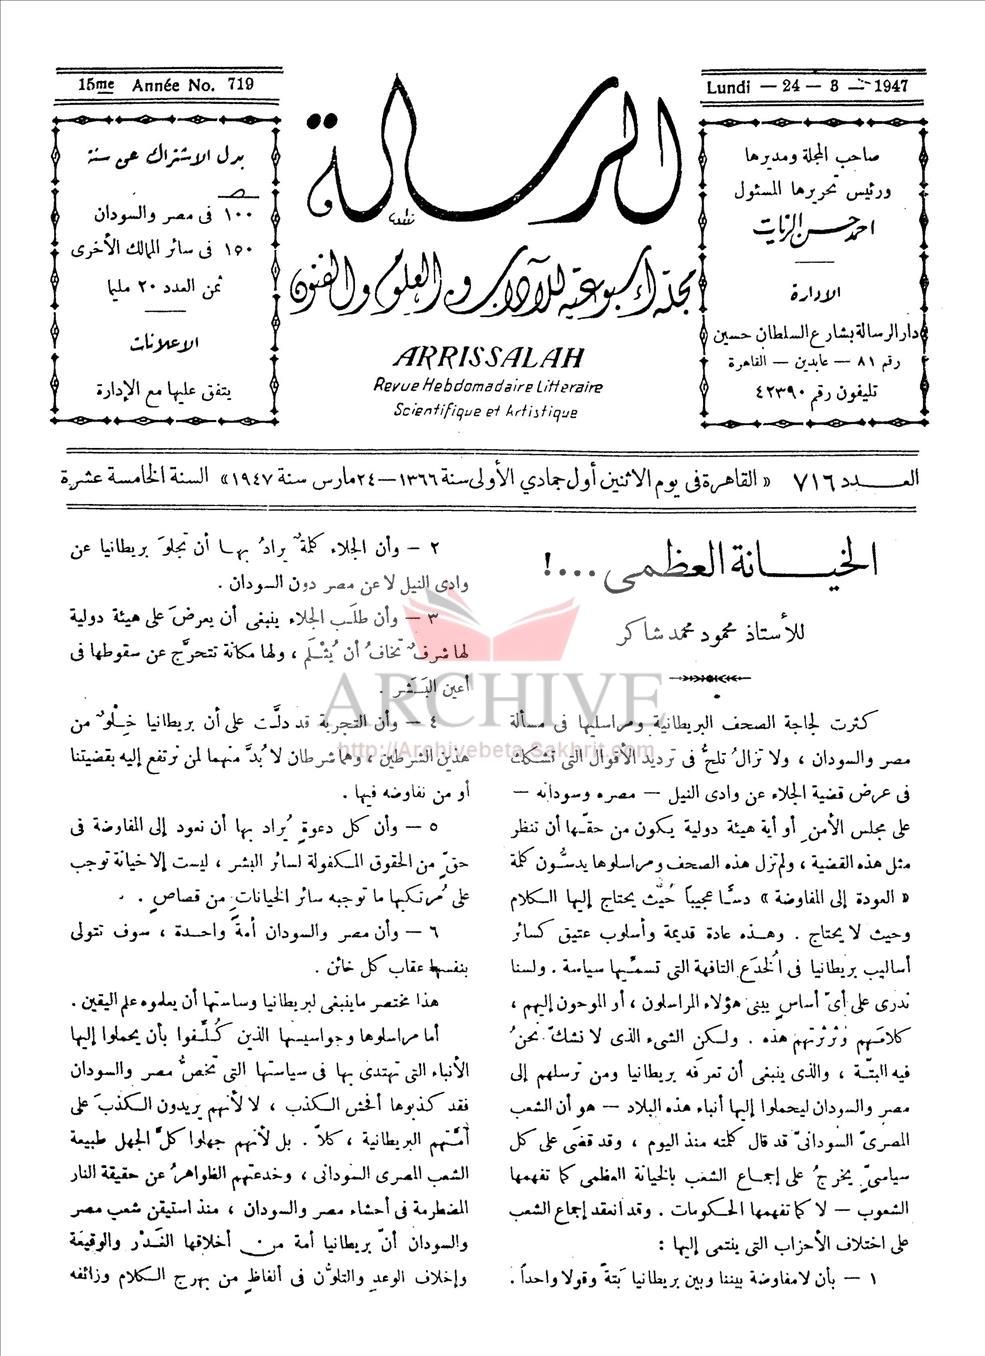 15me Année No. 719
Lundi — 24 — 3 — 1947
صاحب المجلة ومديرها
ورئيس تحريرها المسئول
احمد حسن الزيات
الادارة
دار الرسالة بشارع السلطان حسين
رقم ٨١ — عابدين — القاهرة
تليفون رقم ٤٢٣٩٠
الرسالة
مجلة أسبوعية للآداب والعلوم والفنون
ARRISSALAH
Revue Hebdomadaire Littéraire
Scientifique et Artistique
بدل الاشتراك عن سنة
١٠٠ فى مصر والسودان
١٥٠ فى سائر الممالك الأخرى
ثمن العدد ٢٠ مليما
الاعلانات
يتفق عليها مع الإدارة
العـــدد ٧١٦ « القاهرة فى يوم الاثنين أول جمادي الأولى سنة ١٣٦٦ — ٢٤ مارس سنة ١٩٤٧ » السنة الخامسة عشرة
الخيـــانة العظمى ...!
للأستاذ محمود محمد شاكر
كثرت لجاجة الصحف البريطانية ومراسليها فى مسألة
مصر والسودان ، ولا تزالُ تلحُّ فى ترديد الأقوال التى تشكك
فى عرض قضية الجلاء عن وادى النيل — مصره وسودانه —
على مجلس الأمن أو أية هيئة دولية يكون من حقـها أن تنظر
مثل هذه القضية ، ولم تزل هذه الصحف ومراسلوها يدسُّون كلمة
« العودة إلى المفاوضة » دسًّا عجيباً حيث يحتاج إليها الكلام
وحيث لا يحتاج . وهذه عادة قديمة وأسلوب عتيق كسائر
أساليب بريطانيا فى الخدَع التافهة التى تسمّيها سياسة . ولسنا
ندرى على أىّ أساسٍ يبنى هؤلاء المراسلون ، أو الموحون إليهم ،
كلامَهم وثرثرتهم هذه . ولكن الشىء الذى لا نشكّ نحنُ
فيه البتّة ، والذى ينبغى أن تعرفه بريطانيا ومن ترسلهم إلى
مصر والسودان ليحملوا إليها أنباء هذه البلاد — هو أن الشعب
المصرىّ السودانىّ قد قال كلمته منذ اليوم ، وقد قضى على كل
سياسىٍّ يخرجُ على إجماع الشعب بالخيانة العظمى كما تفهمها
الشعوب — لا كما تفهمها الحكومات . وقد انعقد إجماع الشعب
على اختلاف الأحزاب التى ينتمى إليها :
١ — بأن لامفاوضة بيننا وبين بريطانيا بَتةً وقولا واحداً .
٢ — وأن الجلاء كلمةٌ يرادُ بها أن تجلوَ بريطانيا عن
وادى النيل لا عن مصر دون السودان .
٣ — وأن طلَب الجلاء ينبغى أن يعرضَ على هيئة دولية
لها شرفٌ تخافُ أن يُثْلَم ، ولها مكانة تتحرَّج عن سقوطها فى
أعين البَشر .
٤ — وأن التجربة قد دلّت على أن بريطانيا خِلْوٌ من
هذين الشرطين ، وهما شرطان لا بُدَّ منهما لمن نرتفع إليه بقضيتنا
أو من نفاوضه فيها .
٥ — وأن كل دعوةٍ يُراد بها أن نعود إلى المفاوضة فى
حقٍّ من الحقوق المكفولة لسائر البشر ، ليست إلا خيانة توجب
على مُرتكبها ما توجبه سائر الخيانات من قصاصٍ .
٦ — وأن مصر والسودان أمةٌ واحدة ، سوف تتولى
بنفسها عقاب كل خائن .
هذا مختصر ماينبغى لبريطانيا وساستها أن يعلموه علم اليقين .
أما مراسلوها وجواسيسها الذين كُلِّفوا بأن يحملوا إليها
الأنباء التى تهتدى بها فى سياستها التى تخصُّ مصر والسودان
فقد كذبوها أفحش الكذب ، لا لأنهم يريدون الكذبَ على
أمّتهم البريطانية ، كلاّ . بل لأنهم جهلوا كلَّ الجهل طبيعة
الشعب المصرى السودانى ، وخدعتهم الظواهرُ عن حقيقة النار
المضطرمة فى أحشاء مصر والسودان ، منذ استيقن شعب مصر
والسودان أنّ بريطانيا أمة من أخلاقها الغَدْر والوقيعة
وإخلاف الوعدِ والتلوّن فى ألفاظٍ من بهرج الكلام وزائفه
ARCHIVE
http://Archivebeta.Sakhrit.com